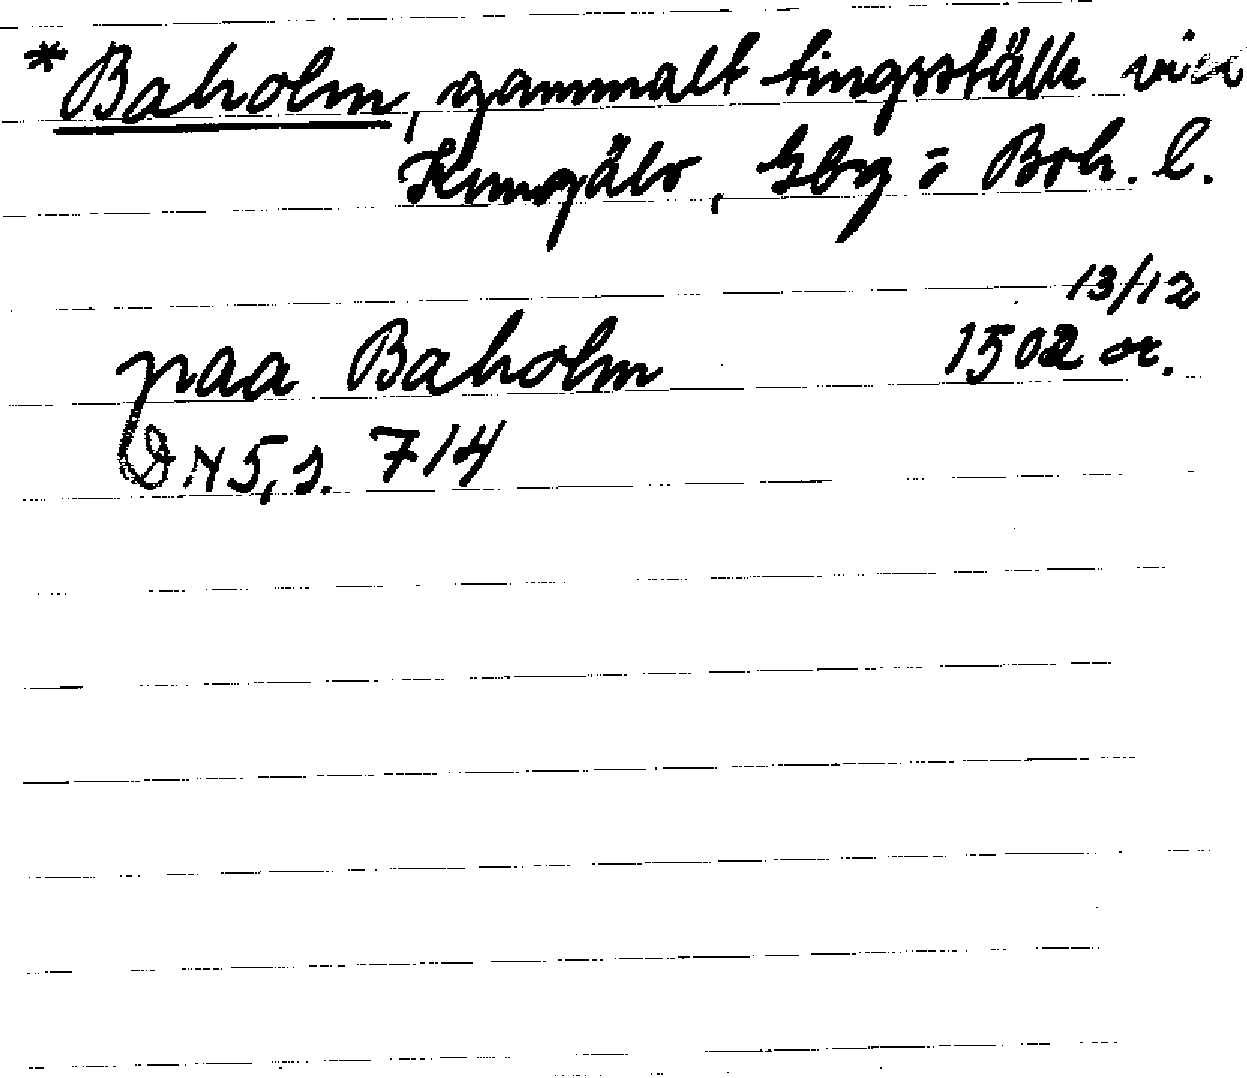 *Baholm, gammalt tingsställe vid
Kungälv, Gbg = Boh. l.
13/12
paa Baholm 1502 or.
DN 5, s. 714